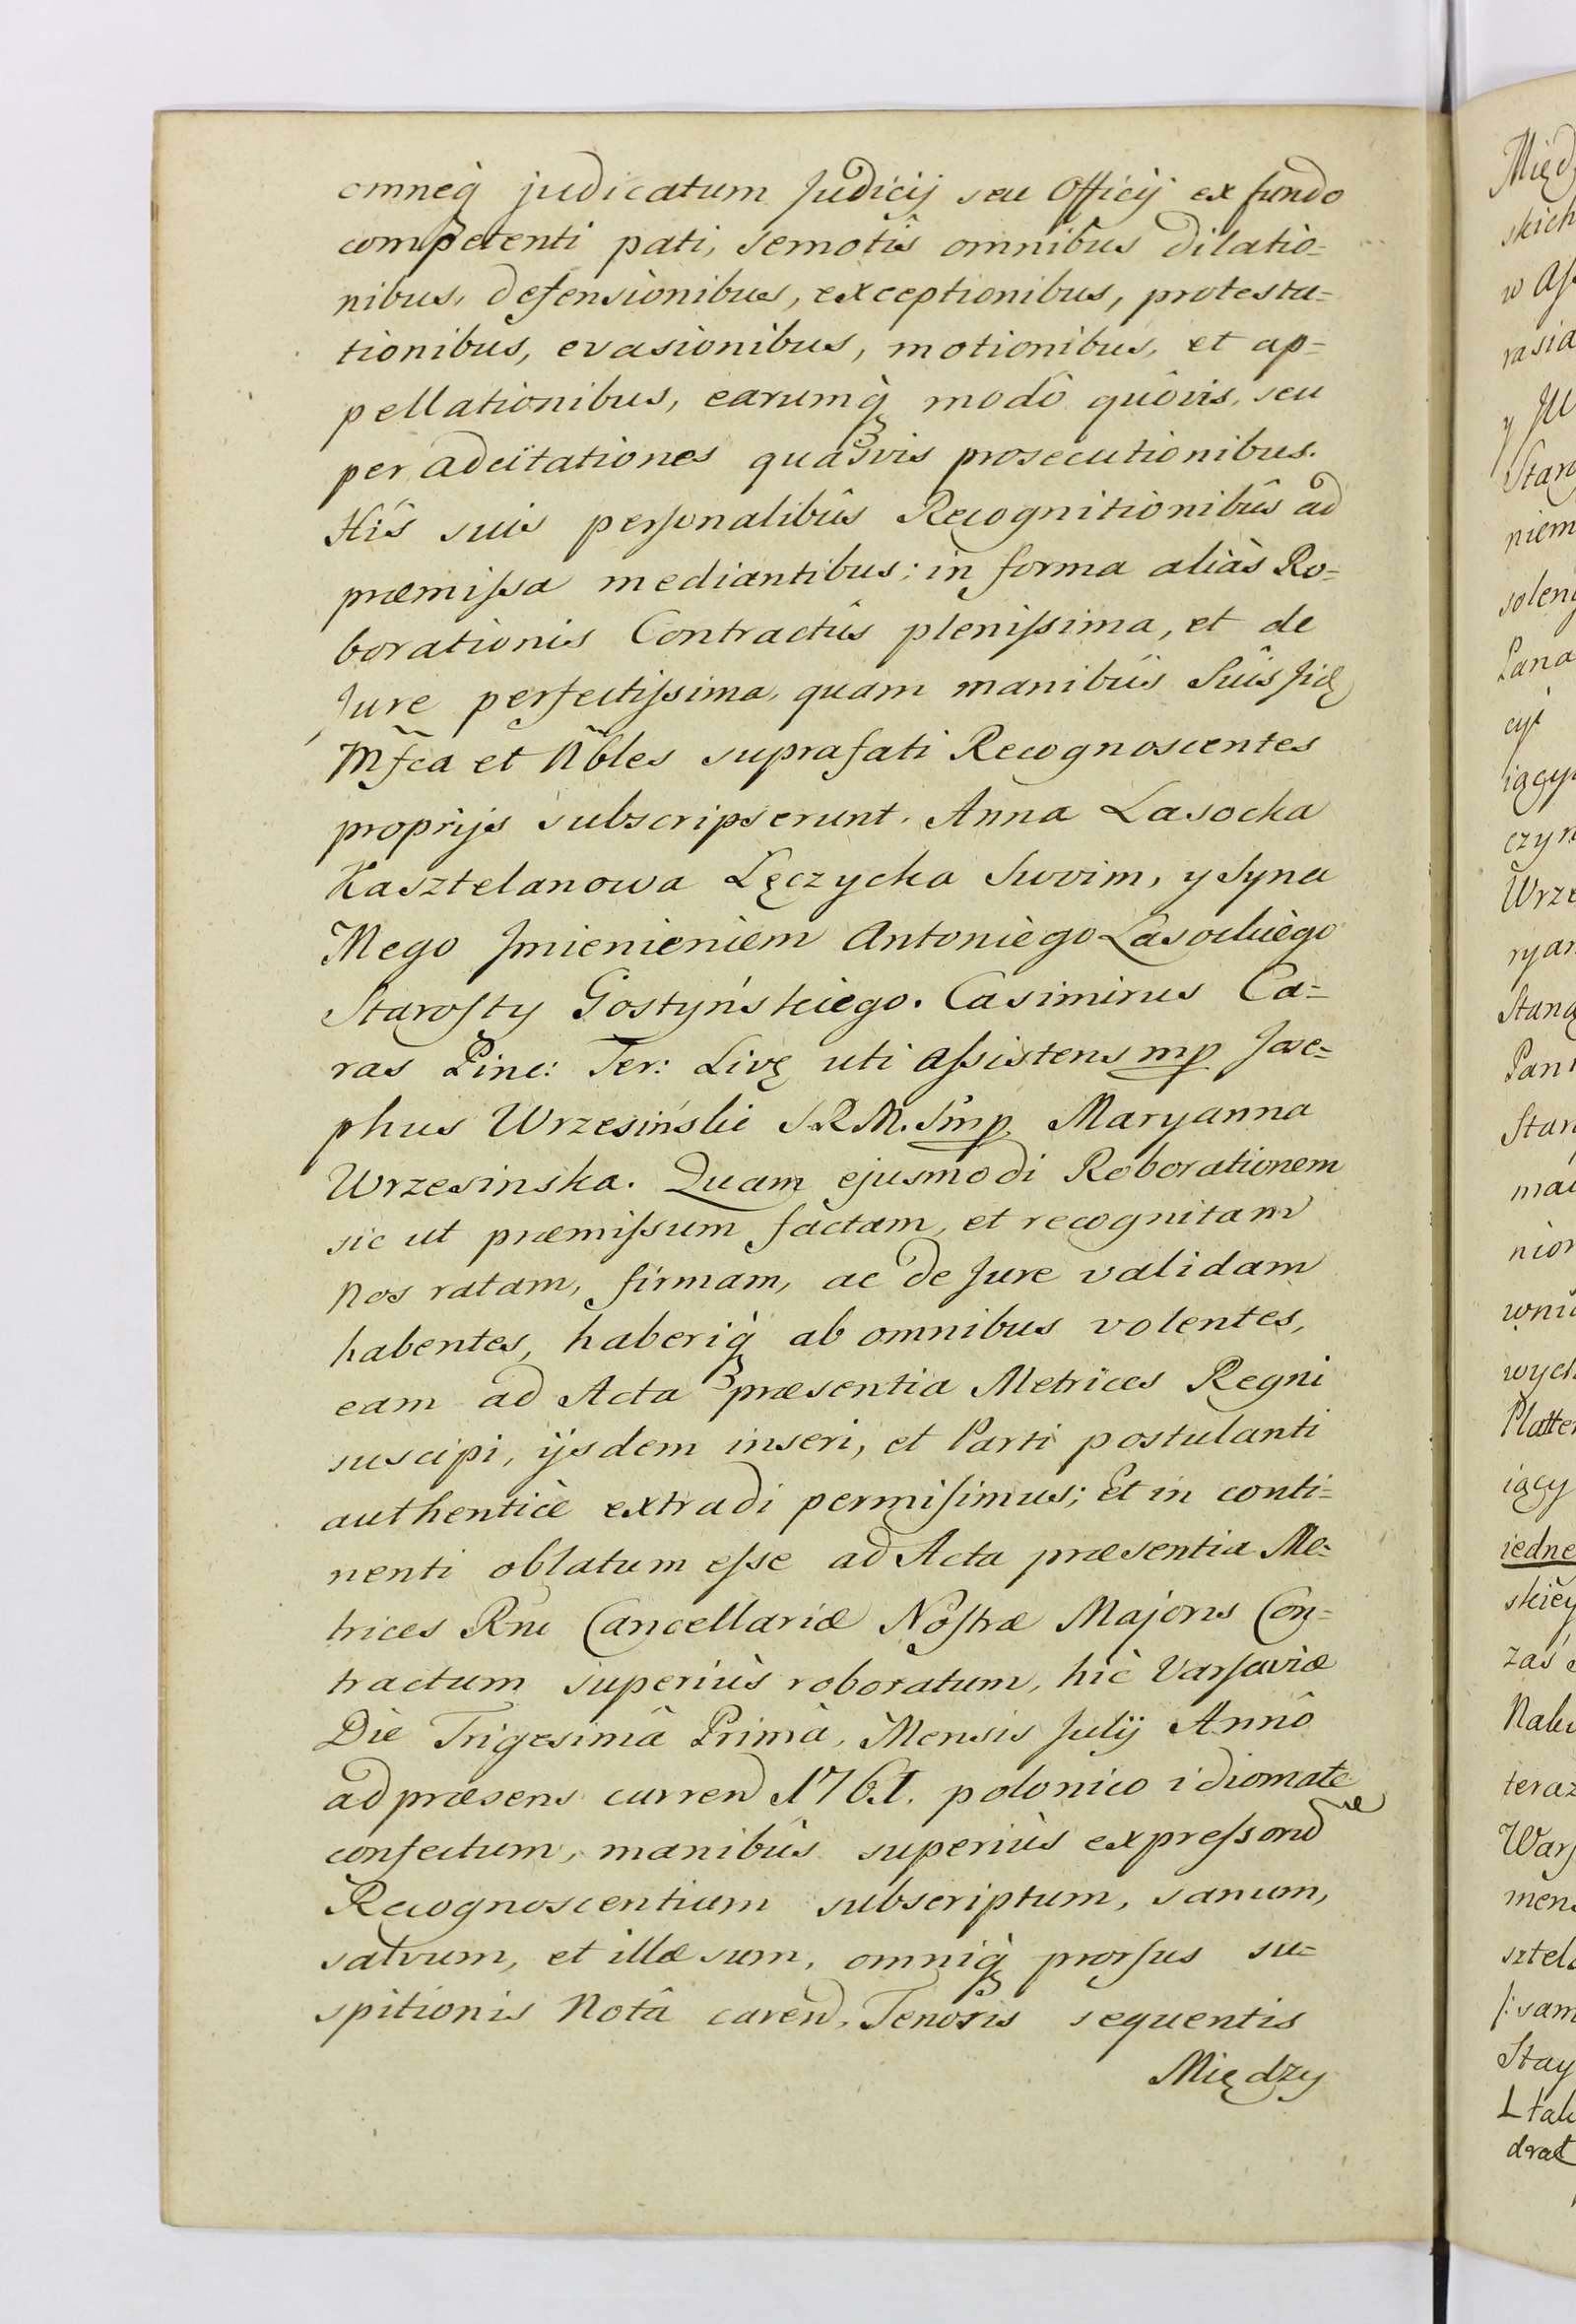 omneq́ judicatum Judicij seu Officij ex fundo
competenti pati, semotîs omnibûs dilatio=
nibus, defensionibus, exceptionibus, protesta=
tionibus, evasionibus, motionibus, et ap=
pellationibus, earumq́ modô quôvis, seu
per adcitationes quasvis prosecutionibus.
Hîs suis personalibûs Recognitionibûs ad
præmissa mediantibus; in forma aliàs Ro=
borationis Contractûs plenissima, et de
Jure perfectissima, quam manibûs Suîs
Mfca et Nbles suprafati Recognoscentes
proprijs subscripserunt. Anna Lasocka
Kasztelanowa Łęczycka Swoim, y Syna
Mego Jmienieniem Antoniego Lasockiègo
Starosty Gostyńskiego. Casimirus Ca=
ras Pinc: Ter: Livę uti assistens mp Jose=
phus Wrzesiński S.R.M. Smp. Maryanna
Wrzesinska. Quam ejusmodi Roborationem
sic ut præmissum factam, et recognitam
Nos ratam, firmam, ac de Jure validam
habentes, haberiq́ ab omnibus volentes,
eam ad Acta præsentia Metrices Regni
suscipi, ijsdem inseri, et Parti postulanti
authenticè extradi permisimus; Et in conti=
nenti oblatum esse ad Acta præsentia Me=
trices Rni Cancellariæ Nostræ Majoris Con=
tractum superiùs roboratum, hìc Varsaviæ
Die Trigesimâ Primâ, Mensis Julij Annô
ad præsens curren 1761. polonico idiomate
confectum, manibûs superiùs expressorū
Recognoscentium subscriptum, sanum,
salvum, et illæsum, omniq́ prorsus su=
spitionis Notâ caren, Tenoris sequentis
Między
Międ
skich
w
rasia
y
Staro
niem
solen
Pana
cyi
iącym
czyn
Wrze
ryan
Stano
Pan
Star
nion
wych
Platter
iący
iedne
skiey
zaś
teraz
mens
sztel